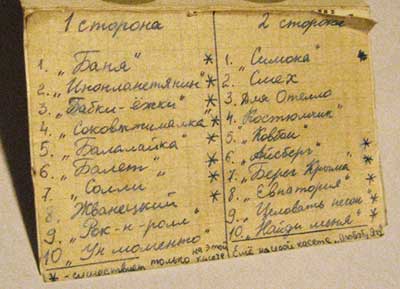 1 сторона
1. „Баня" *
2. „Инопланетянин" *
3. „Бабки-ёжки" *
4. „Соковыжималка" *
5. „Балалайка" *
6. „Балет" *
7. „Солли" *
8. Жванецкий *
9. „Рок-н-ролл"
10. „Ун моменто"
2 сторона
1. „Симона" *
2. Смех
3. Для Отелло
4. „Костюмчик"
5. „Ковбои"
6. „Айсберг" *
7. „Берег Крыма" *
8. „Евпатория" *
9. „Целовать песок" *
10. „Найди меня" *
* - существует только на этой кассете! Ещё на моей кассете